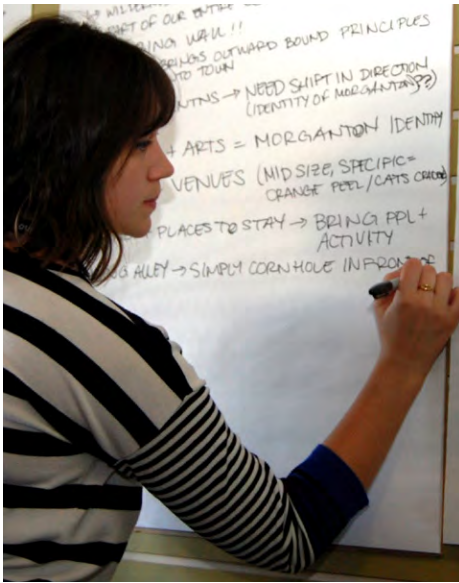 PART OF OUR ENTIRE
WALL!!
BRINGS OUTWARD BOUND PRINCIPLES
TO TOWN
→ NEED SHIFT IN DIRECTION
(IDENTITY OF MORGANTON??)
+ ARTS = MORGANTON IDENTITY
VENUES (MID SIZE, SPECIFIC =
ORANGE PEEL / CATS CRADLE)
PLACES TO STAY → BRING PPL +
ACTIVITY
ALLEY → SIMPLY CORNHOLE IN FRONT OF